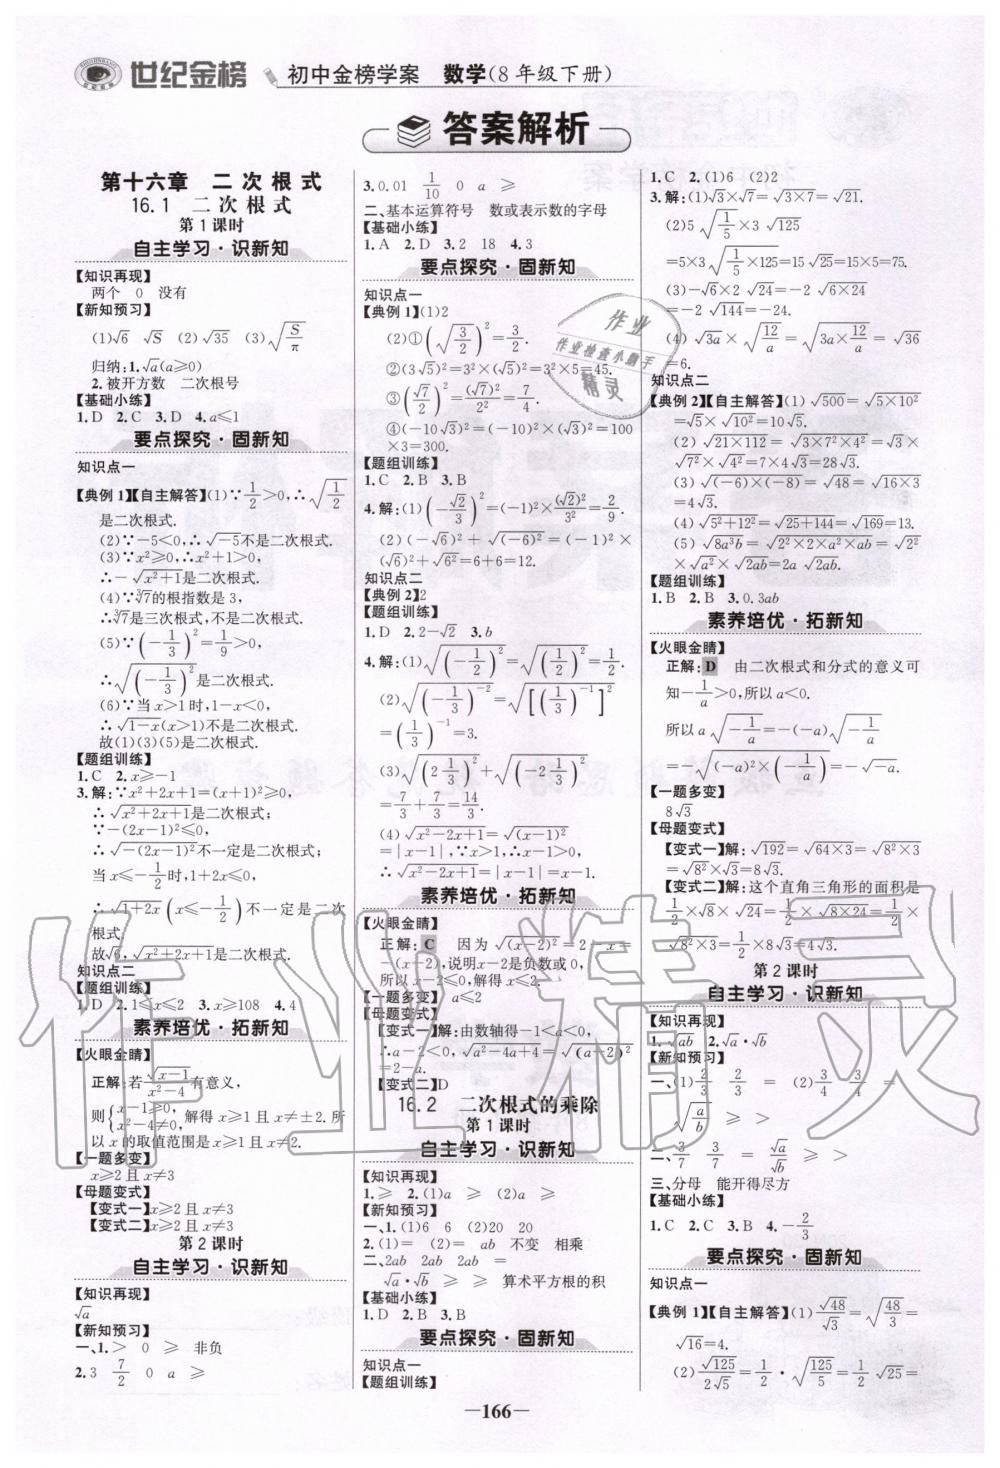 世纪金榜 初中金榜学案 数学(8年级下册)
答案解析
第十六章 二次根式
16.1 二次根式
第1课时
自主学习·识新知
【知识再现】
两个 0 没有
【新知预习】
(1)√6 √S (2)√35 (3)√(S/π)
归纳:1.√a(a≥0)
2.被开方数 二次根号
【基础小练】
1.D 2.C 3.D 4.a≤1
要点探究·固新知
知识点一
【典例1】【自主解答】(1)∵1/2>0,∴√(1/2)
是二次根式.
(2)∵-5<0,∴√-5不是二次根式.
(3)∵x²≥0,∴x²+1>0,
∴-√(x²+1)是二次根式.
(4)∵∛7的根指数是3,
∴∛7是三次根式,不是二次根式.
(5)∵(-1/3)²=1/9>0,
∴√((-1/3)²)是二次根式.
(6)∵当x>1时,1-x<0,
∴√(1-x)(x>1)不是二次根式.
故(1)(3)(5)是二次根式.
【题组训练】
1.C 2.x≥-1
3.解:∵x²+2x+1=(x+1)²≥0,
∴√(x²+2x+1)是二次根式;
∵-(2x-1)²≤0,
∴√(-(2x-1)²)不一定是二次根式;
当x<-1/2时,1+2x<0,
∴√(1+2x)(x≤-1/2)不一定是二次
根式.
故√6,√(x²+2x+1)是二次根式.
知识点二
【题组训练】
1.D 2.1≤x≤2 3.x≥108 4.4
素养培优·拓新知
【火眼金睛】
正解:若√(x-1)/(x²-4)有意义,
则{x-1≥0, x²-4≠0,解得x≥1且x≠±2.所
以x的取值范围是x≥1且x≠2.
【一题多变】
x≥2且x≠3
【母题变式】
【变式一】x≥2且x≠3
【变式二】x≥2且x≠3
第2课时
自主学习·识新知
【知识再现】
√a
【新知预习】
一、1.> 0 ≥ 非负
2.3 7/2 0 a ≥
3.0.01 1/10 0 a ≥
二、基本运算符号 数或表示数的字母
【基础小练】
1.A 2.D 3.2 18 4.3
要点探究·固新知
知识点一
【典例1】(1)2
(2)①(√(3/2))²=3/2.
②(3√5)²=3²×(√5)²=9×5=45.
③(√7/2)²=(√7)²/2²=7/4.
④(-10√3)²=(-10)²×(√3)²=100
×3=300.
【题组训练】
1.C 2.B 3.B
4.解:(1)(-√2/3)²=(-1)²×(√2)²/3²=2/9.
(2)(-√6)²+√((-6)²)=(-1)²×
(√6)²+√(6²)=6+6=12.
知识点二
【典例2】2
【题组训练】
1.D 2.2-√2 3.b
4.解:(1)√((-1/2)²)=√((1/2)²)=1/2.
(2)√((-1/3)⁻²)=√([(1/3)⁻¹]²)
=(1/3)⁻¹=3.
(3)√((2 1/3)²)+√((-2 1/3)²)
=7/3+7/3=14/3.
(4)√(x²-2x+1)=√((x-1)²)
=|x-1|,∵x>1,∴x-1>0,
∴√(x²-2x+1)=|x-1|=x-1.
素养培优·拓新知
【火眼金睛】
正解:C 因为√((x-2)²)=2-x=
-(x-2),说明x-2是负数或0,
所以x-2≤0,解得x≤2.
【一题多变】 a≤2
【母题变式】
【变式一】解:由数轴得-1<a<0,
∴a-2<0,∴√(a²-4a+4)=√((a-2)²)
=2-a.
【变式二】D
16.2 二次根式的乘除
第1课时
自主学习·识新知
【知识再现】
1.≥ 2.(1)a ≥ (2)a ≥
【新知预习】
一、1.(1)6 6 (2)20 20
2.(1)= (2)= ab 不变 相乘
二、2ab 2ab 2ab =
√a·√b ≥ ≥ 算术平方根的积
【基础小练】
1.D 2.B 3.B
要点探究·固新知
知识点一
【题组训练】
1.C 2.(1)6 (2)2
3.解:(1)√3×√7=√(3×7)=√21.
(2)5√(1/5)×3√125
=5×3√(1/5×125)=15√25=15×5=75.
(3)-√6×2√24=-2√(6×24)
=-2√144=-24.
(4)√3a×√(12/a)=√(3a×12/a)=√36
=6.
知识点二
【典例2】【自主解答】(1)√500=√(5×10²)
=√5×√(10²)=10√5.
(2)√(21×112)=√(3×7²×4²)=√3×
√(7²)×√(4²)=7×4√3=28√3.
(3)√((-6)×(-8))=√48=√(16×3)
=4√3.
(4)√(5²+12²)=√(25+144)=√169=13.
(5)√(8a³b)=√(2²×2×a²×ab)=√(2²)
×√(a²)×√(2ab)=2a√(2ab).
【题组训练】
1.B 2.B 3.0.3ab
素养培优·拓新知
【火眼金睛】
正解:D 由二次根式和分式的意义可
知-1/a>0,所以a<0.
所以a√(-1/a)=-(-a)√(-1/a)
=-√((-a)²×(-1/a))=-√-a.
【一题多变】
8√3
【母题变式】
【变式一】解:√192=√(64×3)=√(8²×3)
=√(8²)×√3=8√3.
【变式二】解:这个直角三角形的面积是
1/2×√8×√24=1/2×√(8×24)=1/2×
√(8²×3)=1/2×8√3=4√3.
第2课时
自主学习·识新知
【知识再现】
1.√ab 2.√a·√b
【新知预习】
一、(1)2/3 2/3 = (2)3/4 3/4 =
√(a/b) ≥ >
二、3/7 3/7 = √a/√b ≥ >
三、分母 能开得尽方
【基础小练】
1.C 2.C 3.B 4.-2/3
要点探究·固新知
知识点一
【典例1】【自主解答】(1)√48/√3=√(48/3)=
√16=4.
(2)√125/(2√5)=1/2·√(125/5)=1/2√25=
—166—
作业
作业检查小助手
精灵
作业精灵